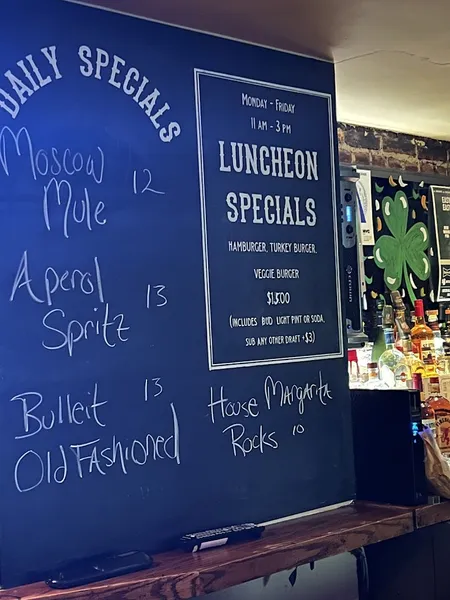 DAILY SPECIALS
Moscow
Mule 12
Aperol
Spritz 13
Bulleit 13
Old Fashioned
MONDAY - FRIDAY
11 AM - 3 PM
LUNCHEON
SPECIALS
HAMBURGER, TURKEY BURGER,
VEGGIE BURGER
$15.00
(INCLUDES BUD LIGHT PINT OR SODA,
SUB ANY OTHER DRAFT +$3)
House Margarita
Rocks 10